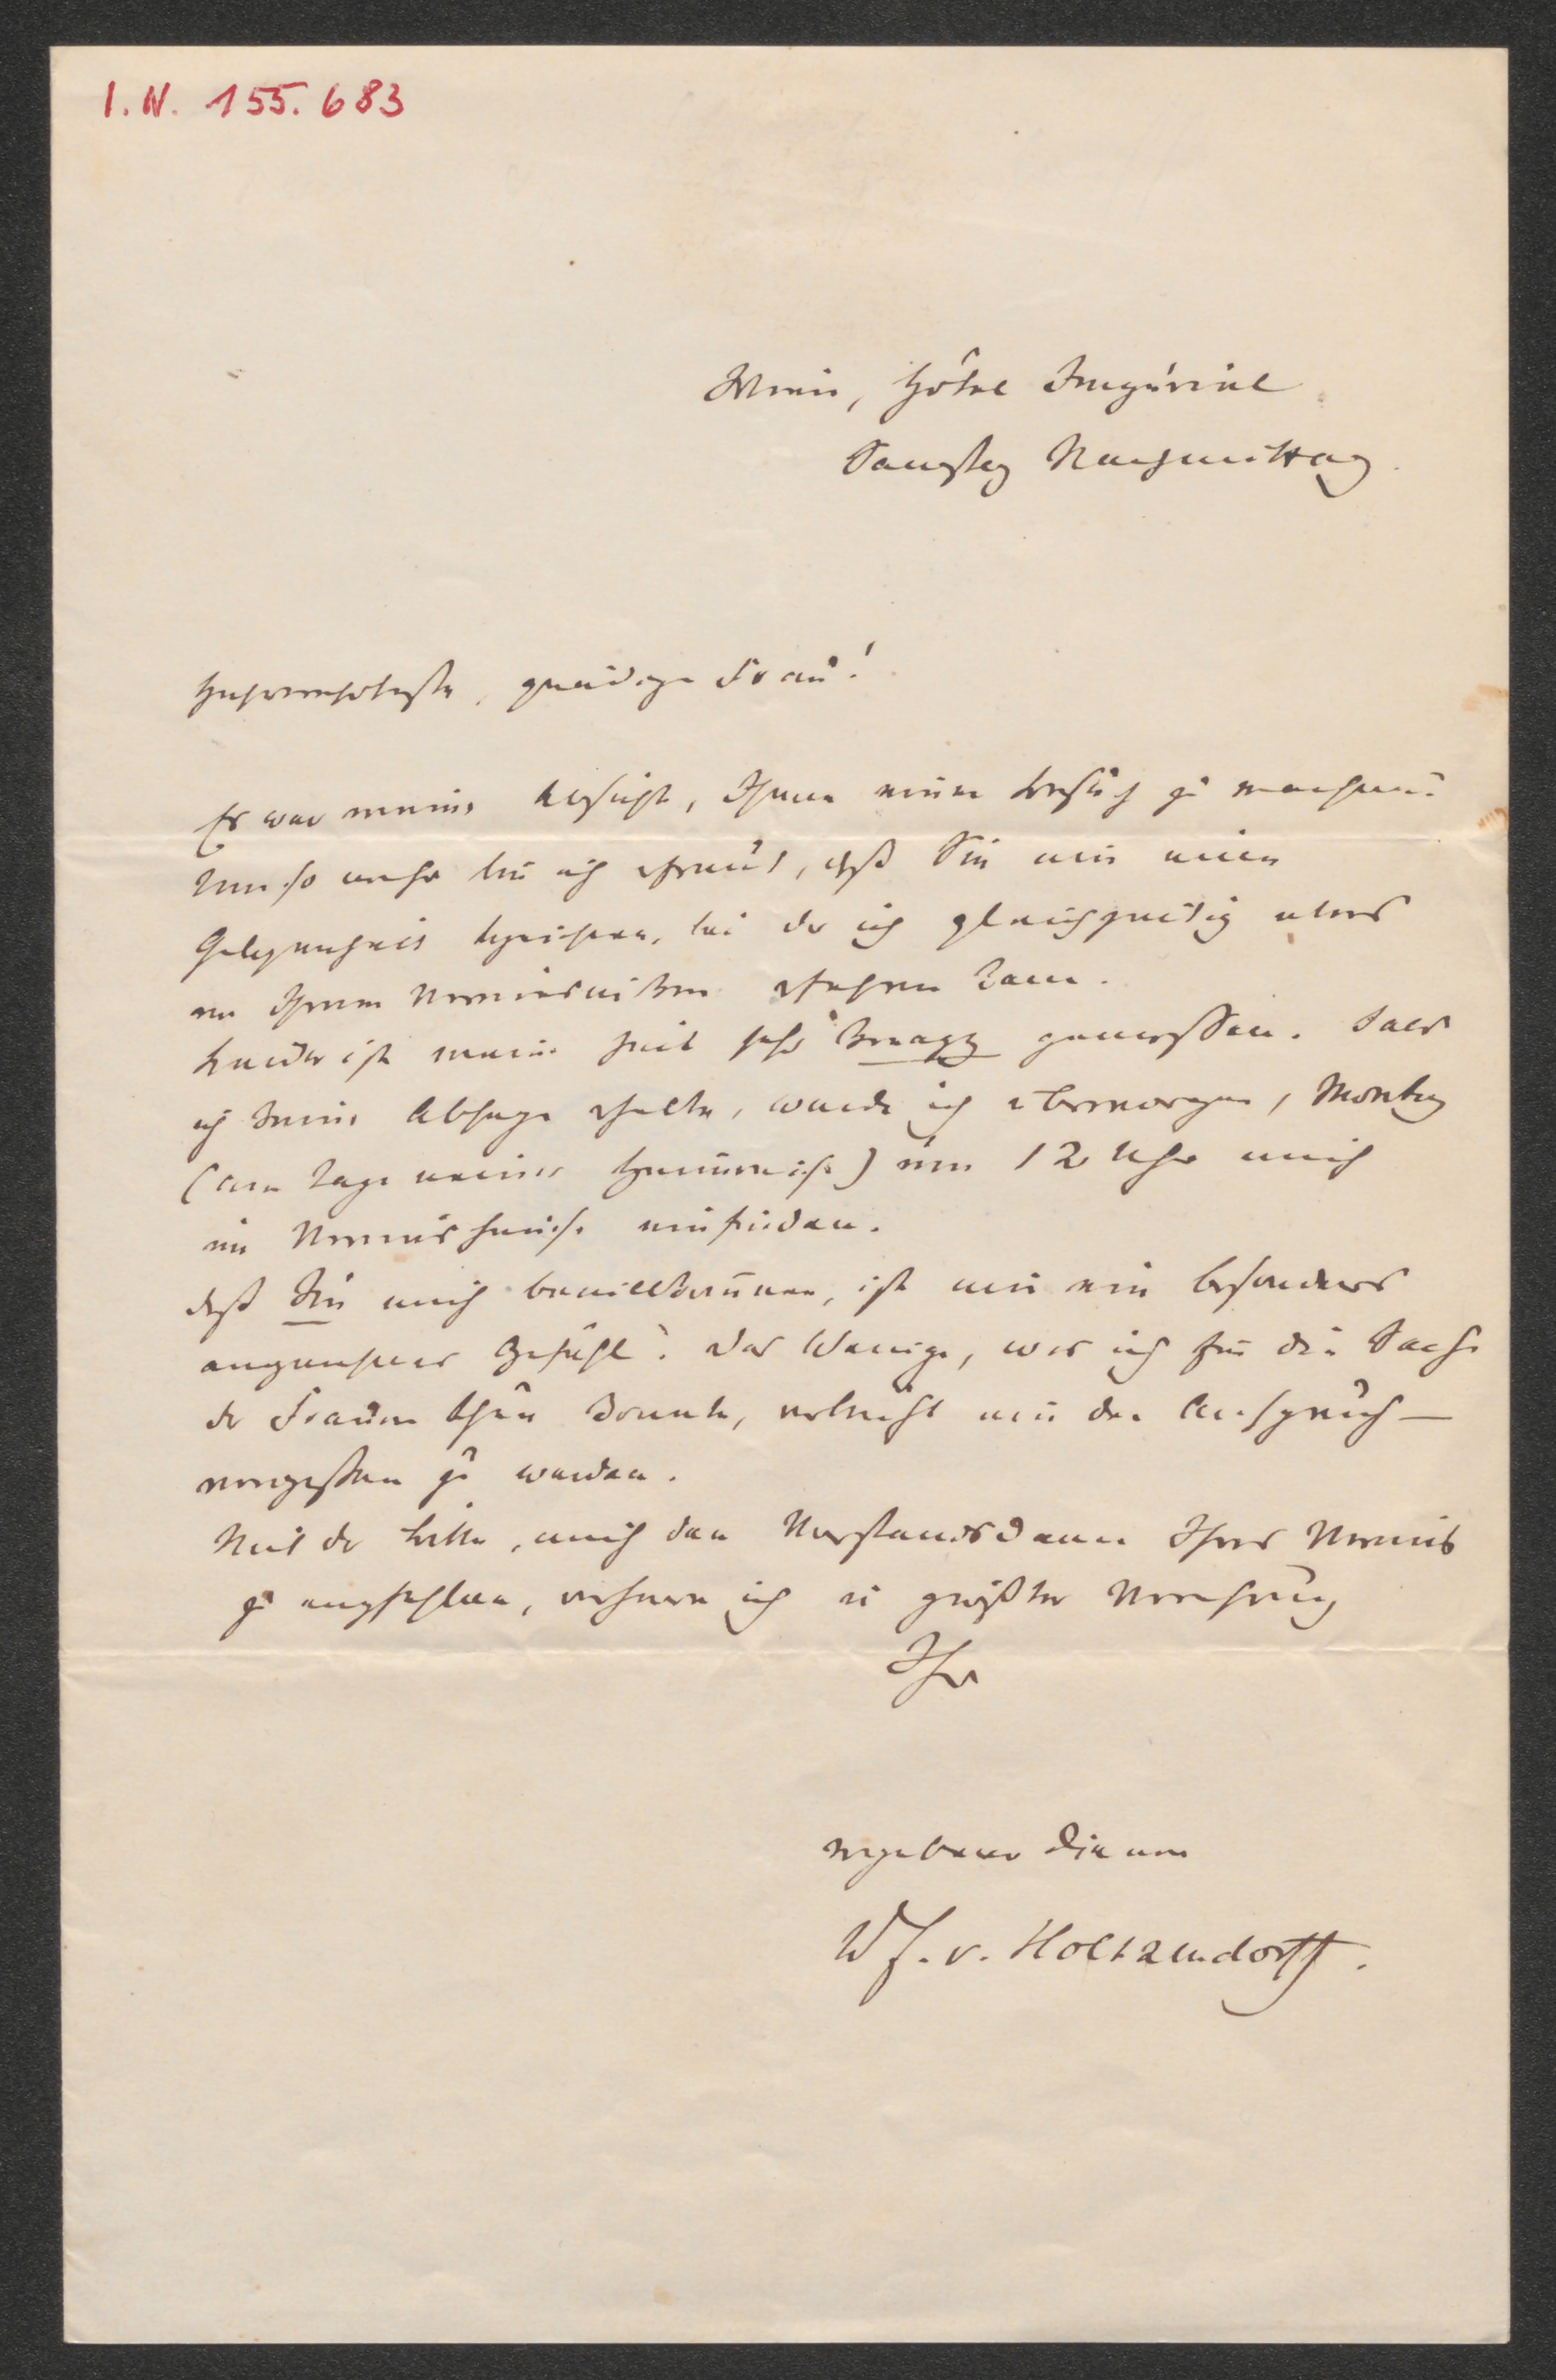 I. N. 155.683
Wien, Hôtel Impérial
Samstag Nachmittag.
Hochverehrteste, gnädige Frau!
Es war meine Absicht, Ihnen einen Besuch zu machen.
Um so mehr bin ich erfreut, daß Sie mir eine
Gelegenheit bezeichnen, bei der ich gleichzeitig etwas
von Ihrem Vereinswirken erfahren kann.
Leider ist meine Zeit sehr knapp gemessen. Falls
ich keine Absage erhalte, werde ich übermorgen, Montag
(am Tage meiner Heimreise) um 12 Uhr mich
im Vereinshause einfinden.
Daß Sie mich bewillkommnen, ist mir ein besonders
angenehmes Gefühl. Das Wenige, was ich für die Sache
der Frauen thun konnte, verleiht mir den Anspruch —
vergessen zu werden.
Mit der Bitte, mich den Vorstandsdamen Ihres Vereins
zu empfehlen, verharre ich in größter Verehrung
Ihr
ergebener Diener
F. v. Holtzendorff.